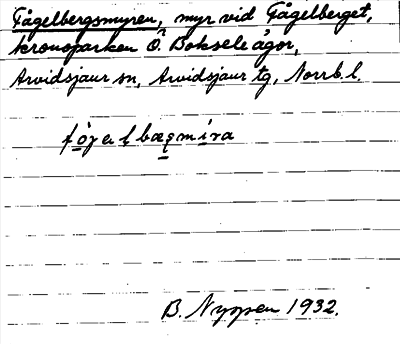 Fågelbergsmyren, myr vid Fågelberget,
kronoparken Ö. Boksele ågor,
Arvidsjaur sn, Arvidsjaur tg, Norrb. l.
B. Nyppen 1932.